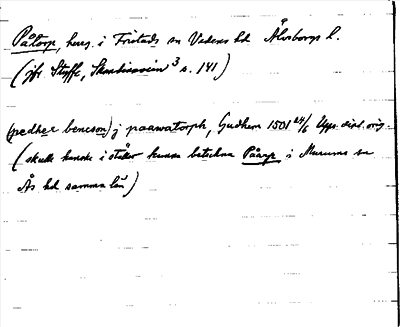 Påtorp, herg. i Fristads sn Vedens hd Älvsborgs l.
(jfr Styffe, Skandinavien³ s. 141)
(pedher bencson) j paawatorph, Gudhem 1501 24/6 Upps. dipl. orig.
(skulle kanske i stället kunna beteckna Påarp i Murums sn
Ås hd samma län)